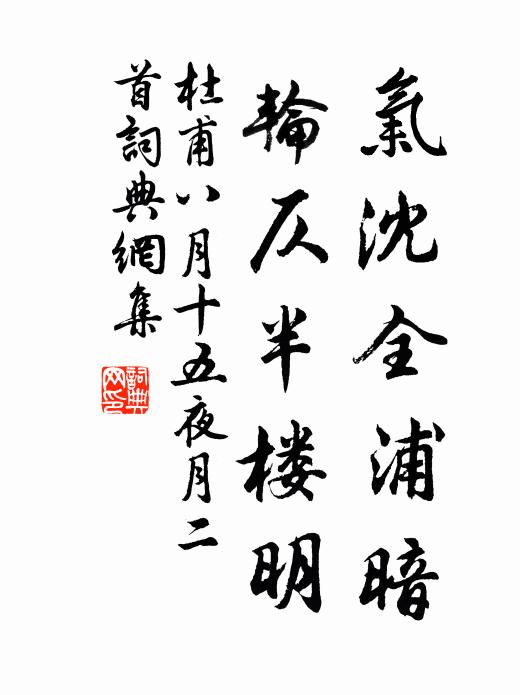 氣沈全浦暗
輪仄半楼明
杜甫八月十五夜月二
首詞典網集
詞典網印